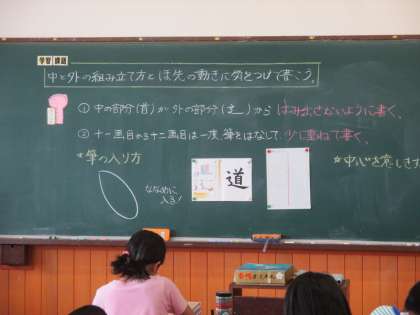 学習課題
中と外の組み立て方とほ先の動きに気をつけて書こう。
① 中の部分(首)が外の部分(辶)からはみ出さないように書く。
② 十一画目から十二画目は一度、筆をはなして、少し重ねて書く。
☆筆の入り方
ななめに
入る!
道
☆中心を意しき